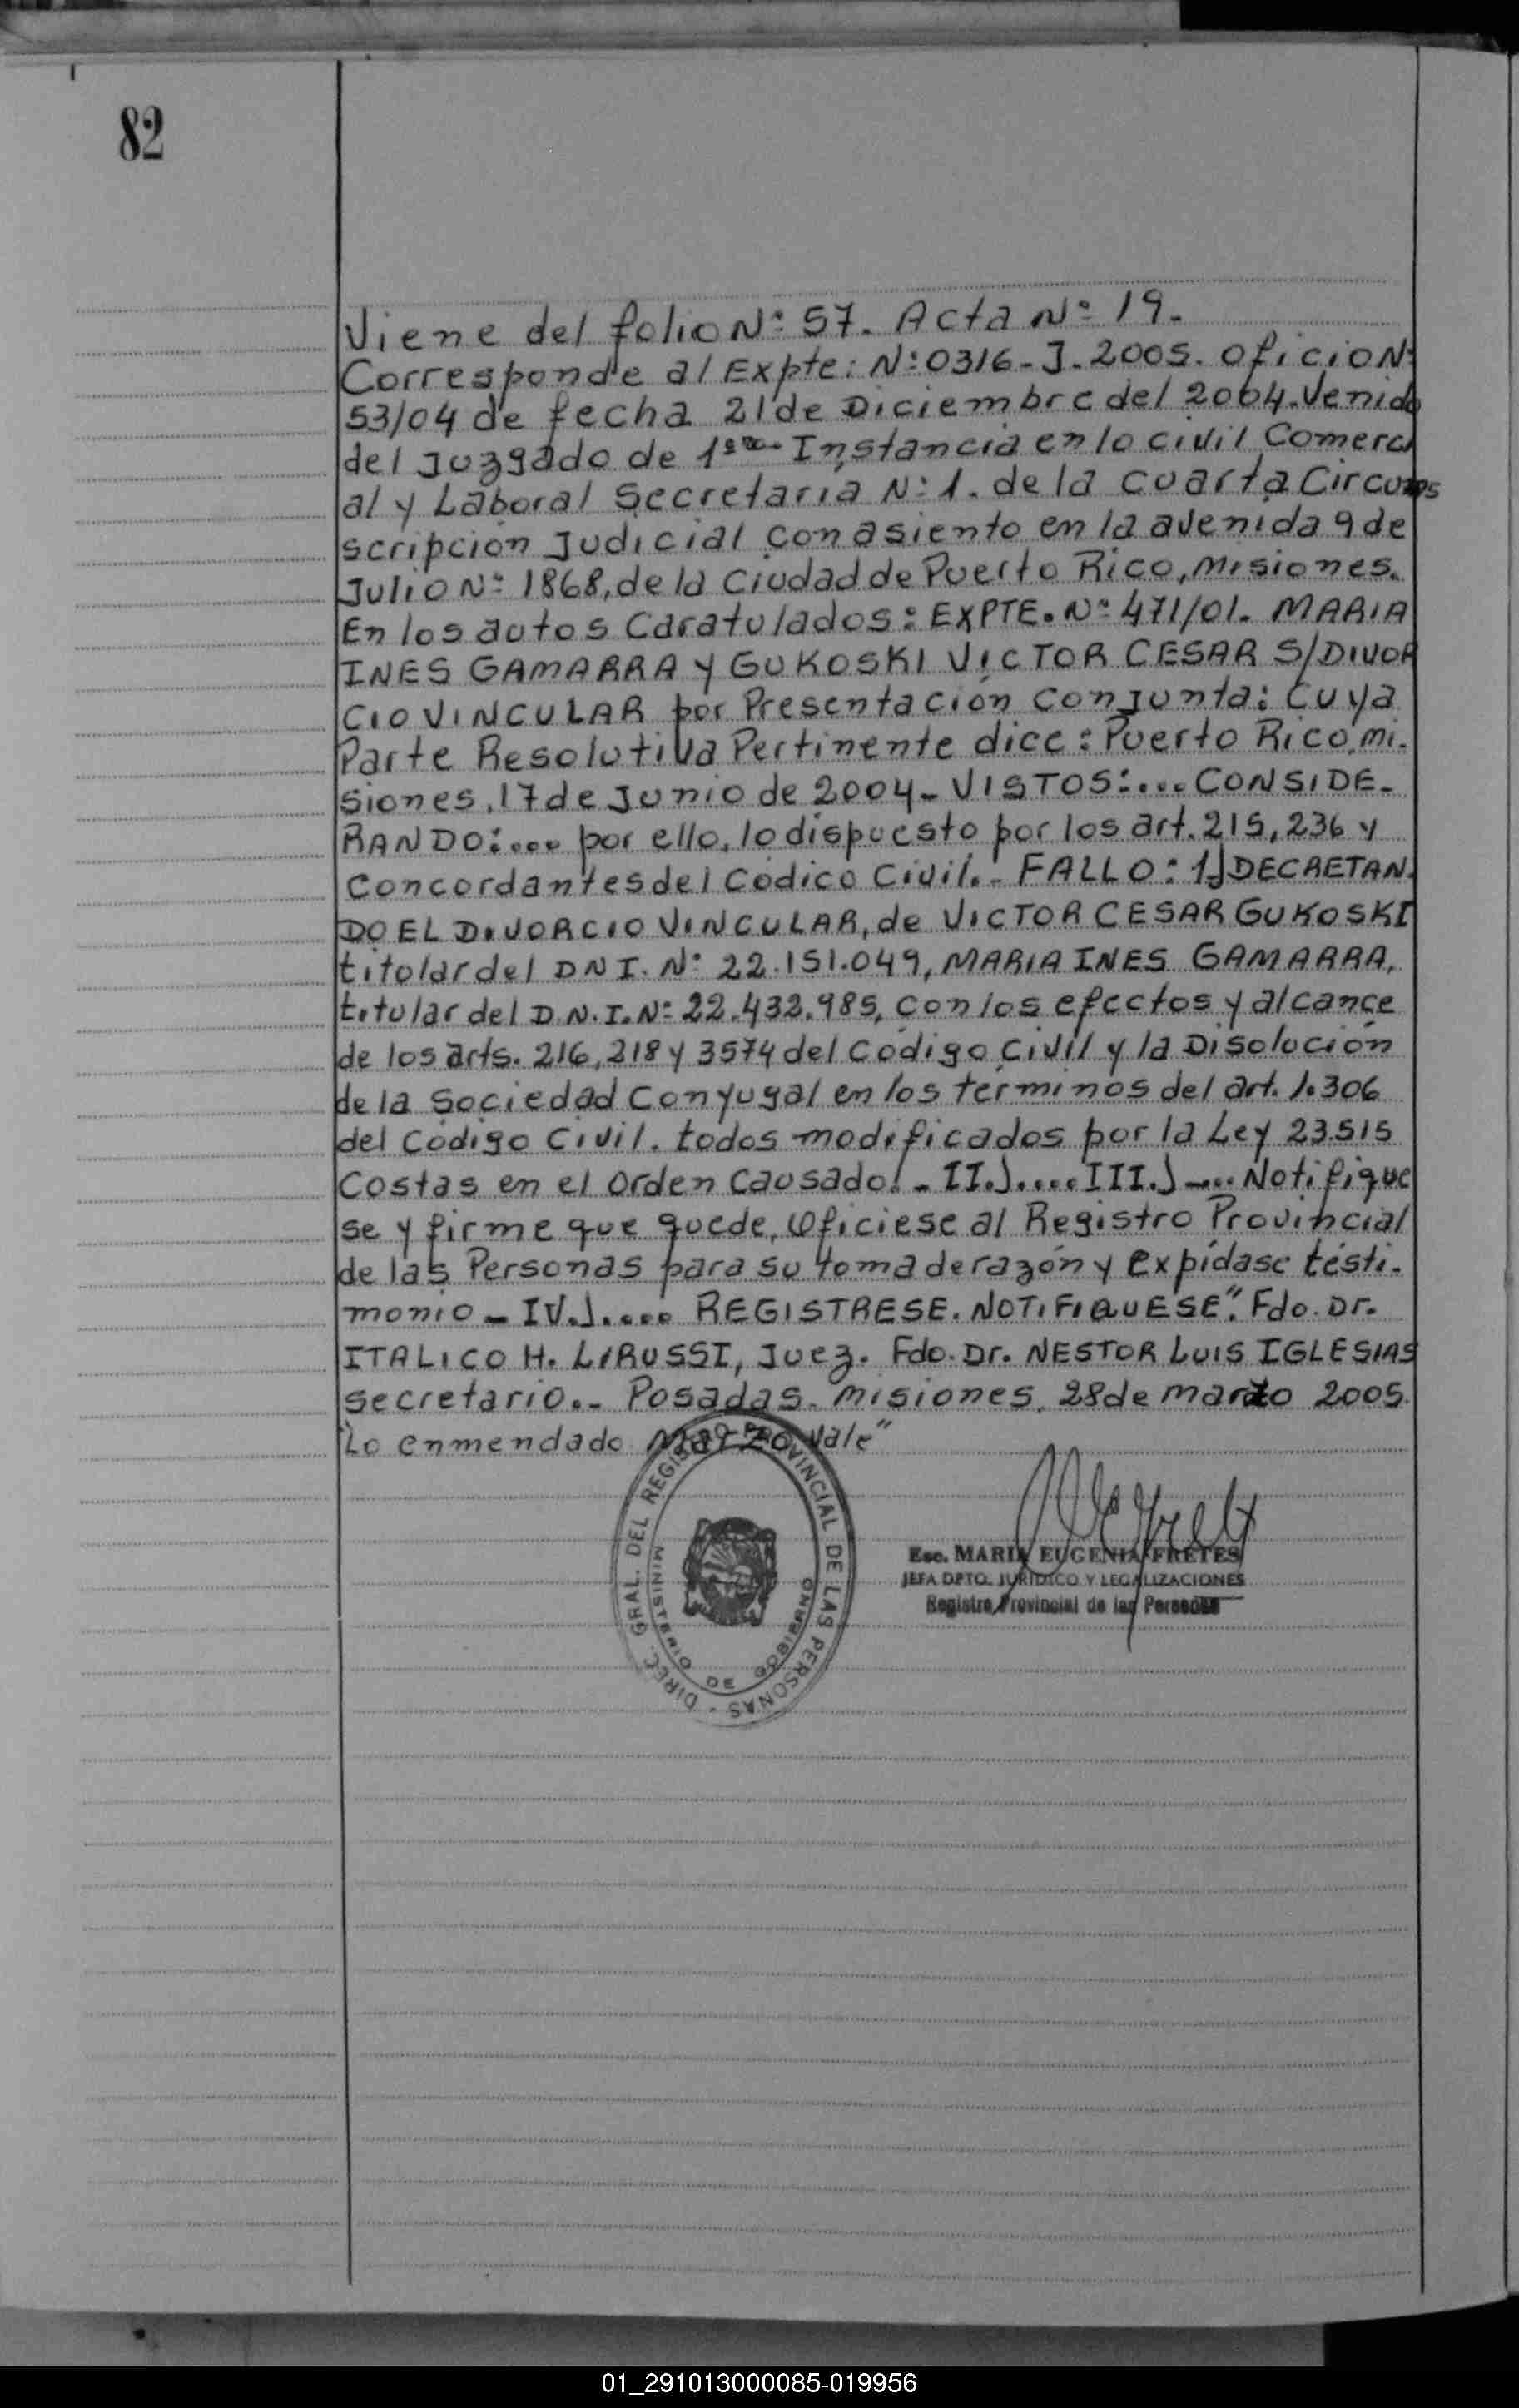 82
Viene del folio Nº 57. Acta Nº 19.
Corresponde al Expte: Nº 0316-J-2005. Oficio Nº
53/04 de fecha 21 de Diciembre del 2004. Venido
del Juzgado de 1era. Instancia en lo civil Comerci
al y Laboral Secretaria Nº 1. de la cuarta Circuns
scripción Judicial con asiento en la avenida 9 de
Julio Nº 1868, de la Ciudad de Puerto Rico, Misiones.
En los autos Caratulados: EXPTE. Nº 471/01. MARIA
INES GAMARRA Y GUKOSKI VICTOR CESAR S/DIVOR
CIO VINCULAR por Presentación Conjunta: Cuya
Parte Resolutiva Pertinente dice: Puerto Rico, mi.
siones, 17 de Junio de 2004- VISTOS:.... CONSIDE-
RANDO:.... por ello, lo dispuesto por los art. 215, 236 y
Concordantes del Código Civil.- FALLO: 1) DECRETAN.
DO EL DIVORCIO VINCULAR, de VICTOR CESAR GUKOSKI
titolar del DNI. Nº 22.151.049, MARIA INES GAMARRA,
titular del D.N.I. Nº 22.432.985, con los efectos y alcance
de los arts. 216, 218 y 3574 del Código Civil y la Disolución
de la Sociedad Conyugal en los términos del art. 1.306
del Código Civil. todos modificados por la Ley 23.515
Costas en el Orden Causado.- II.).....III.)..... Notifique
se y firme que quede, Ofíciese al Registro Provincial
de las Personas para su toma de razón y expídase testi-
monio - IV.).... REGISTRESE. NOTIFIQUESE". Fdo. Dr.
ITALICO H. LIRUSSI, Juez. Fdo. Dr. NESTOR LUIS IGLESIAS
secretario.- Posadas. misiones, 28 de marzo 2005.
"Lo enmendado Marzo Vale"
DIREC. GRAL. DEL REGISTRO PROVINCIAL DE LAS PERSONAS -
MINISTERIO DE GOBIERNO
Esc. MARIA EUGENIA FRETES
JEFA DPTO. JURIDICO Y LEGALIZACIONES
Registro Provincial de las Personas
01_291013000085-019956